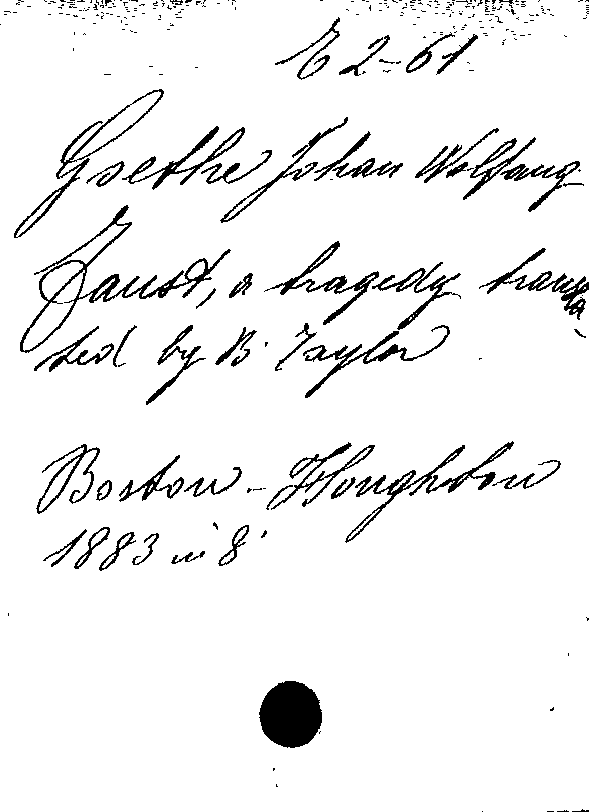 E 2-61
Goethe Johan Wolfang
Faust, a tragedy transla
ted by B. Taylor
Boston - Houghton
1883 in 8°